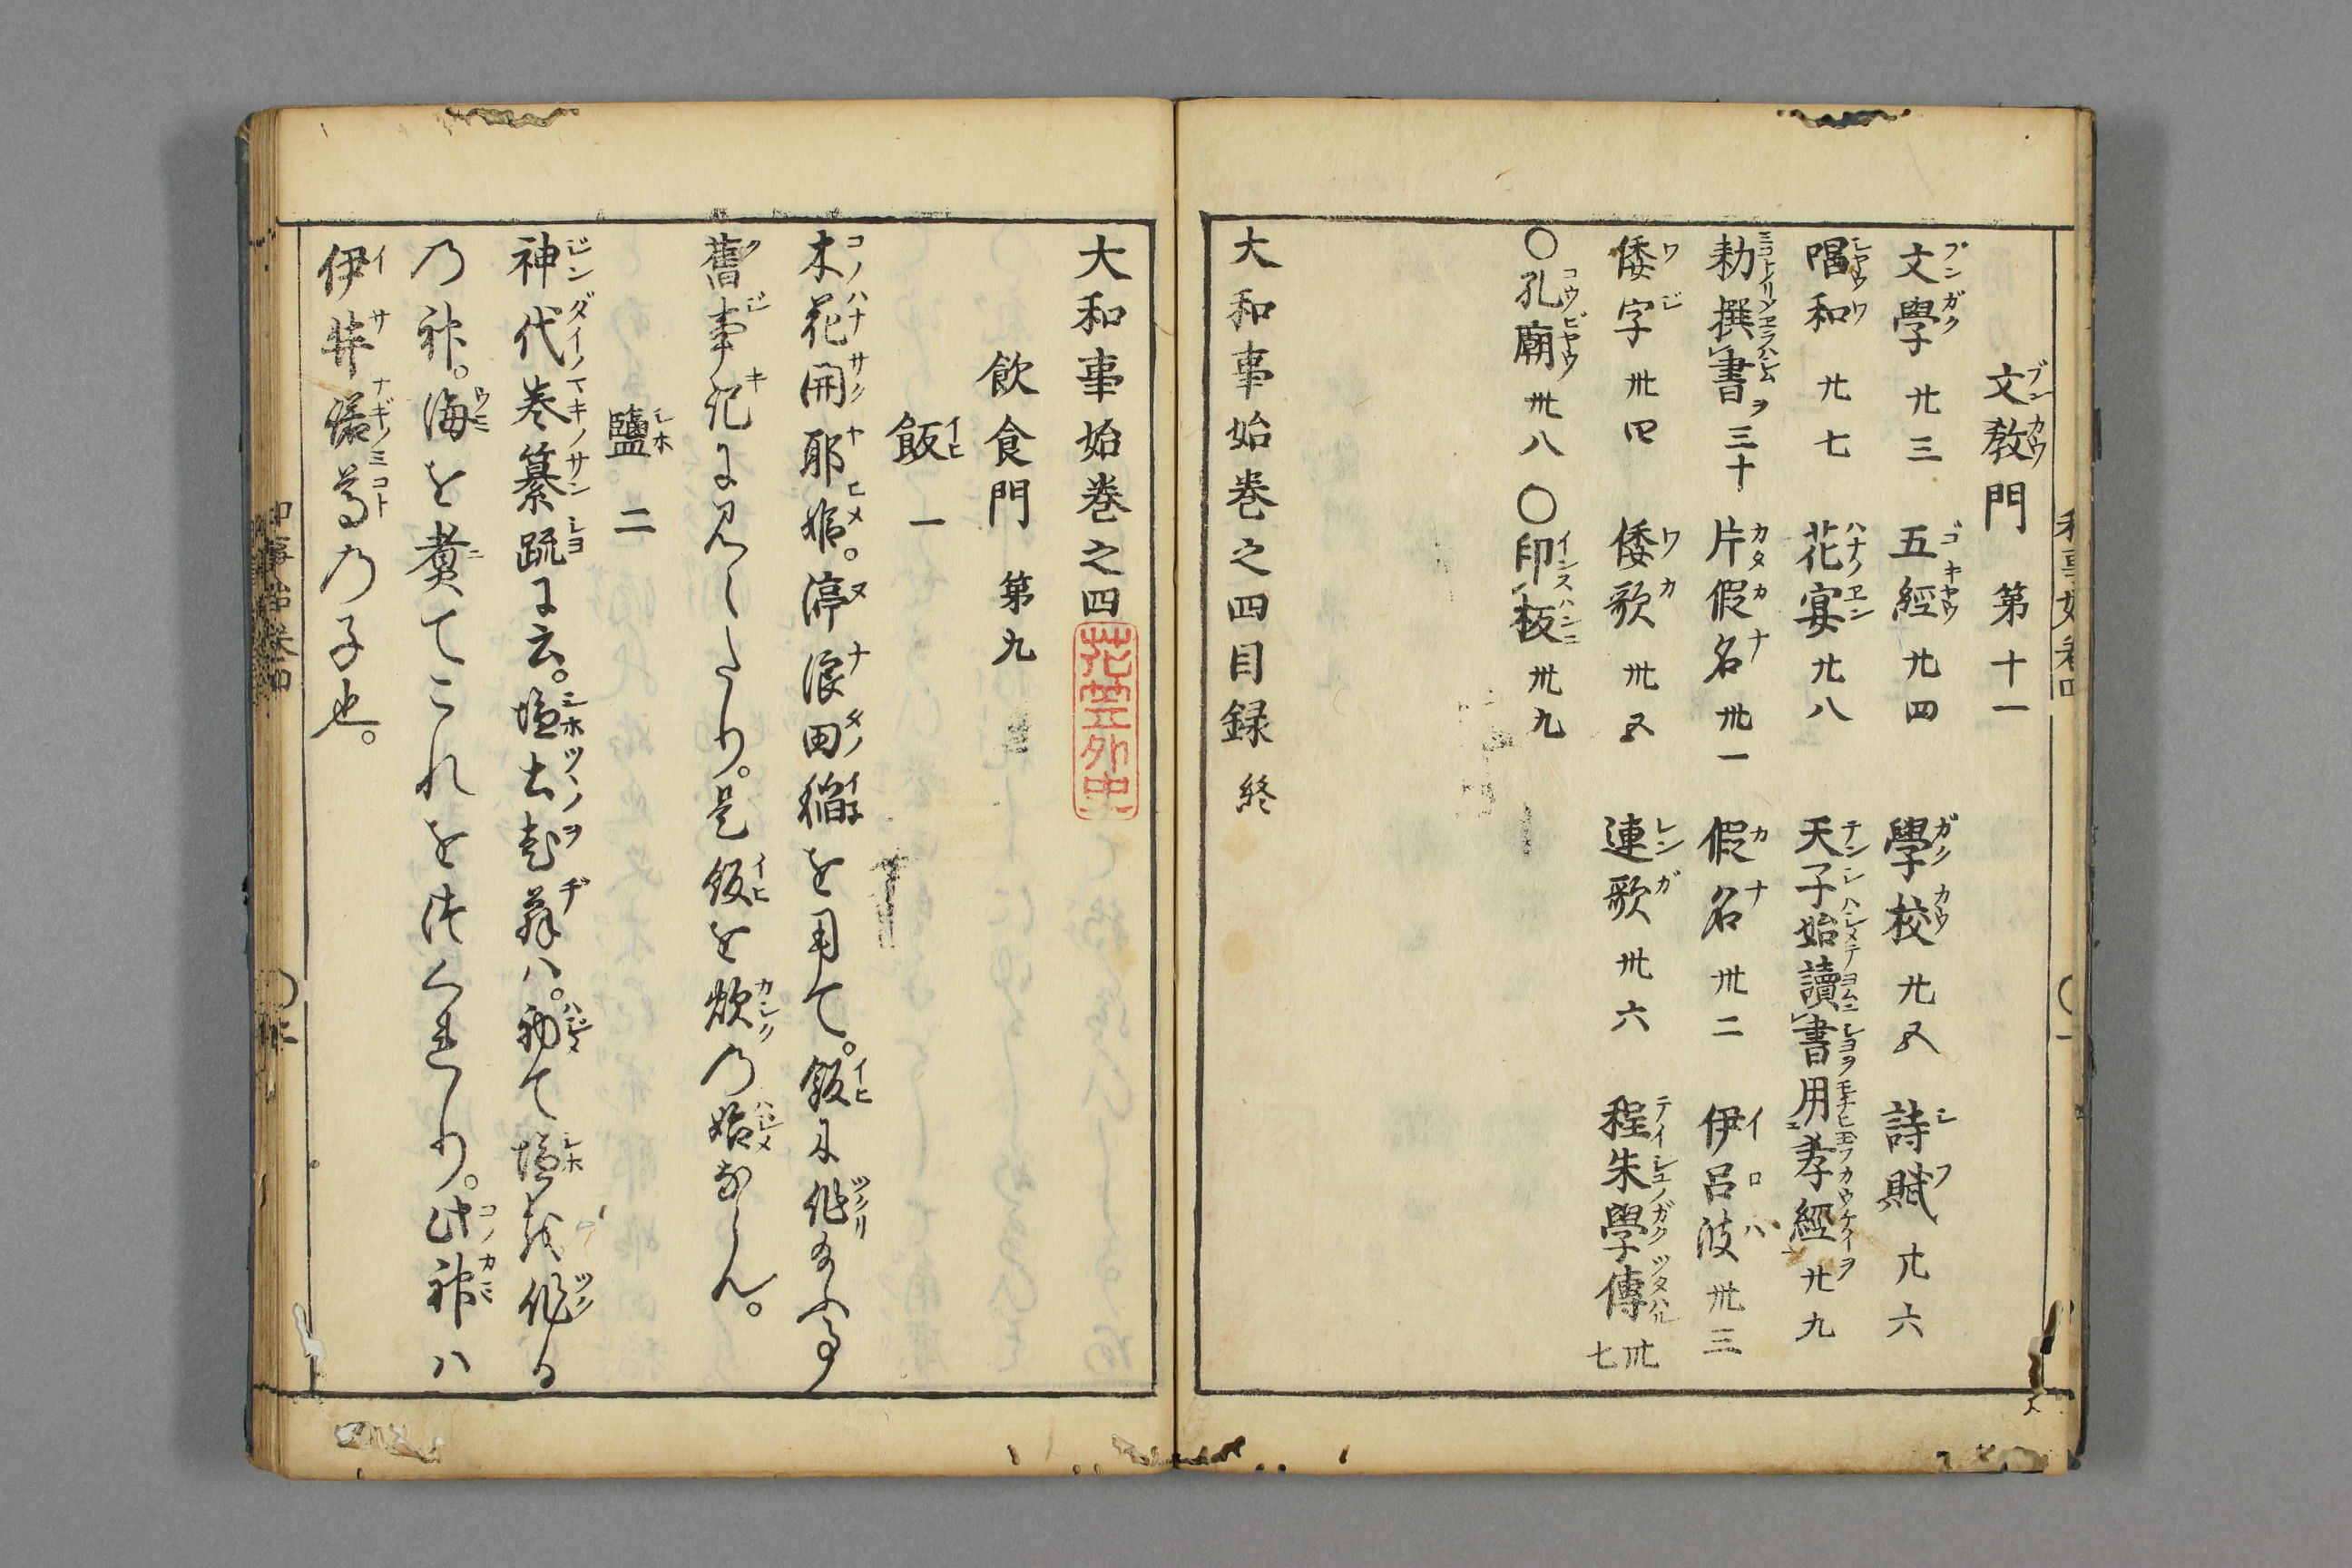 文教門 第十一
文學 廿三 五經 廿四 學校 廿五 詩賦 廿六
唱和 廿七 花宴 廿八 天子始讀書用孝經 廿九
勅撰書 三十 片假名 卅一 假名 卅二 伊呂波 卅三
倭字 卅四 倭歌 卅五 連歌 卅六 程朱學傳 卅七
〇孔廟 卅八 〇印板 卅九
大和事始巻之四目録 終
大和事始巻之四
花笠外史
飲食門 第九
飯 一
木花開耶姫。渟浪田稲を用て。飯に作給ふ事
舊事記に見えたり。是飯を炊乃始ならん。
鹽 二
神代巻纂疏に云。塩土老翁ハ。初て塩を作る
乃神。海を煮てこれをつくれり。此神ハ
伊弉諾尊乃子也。